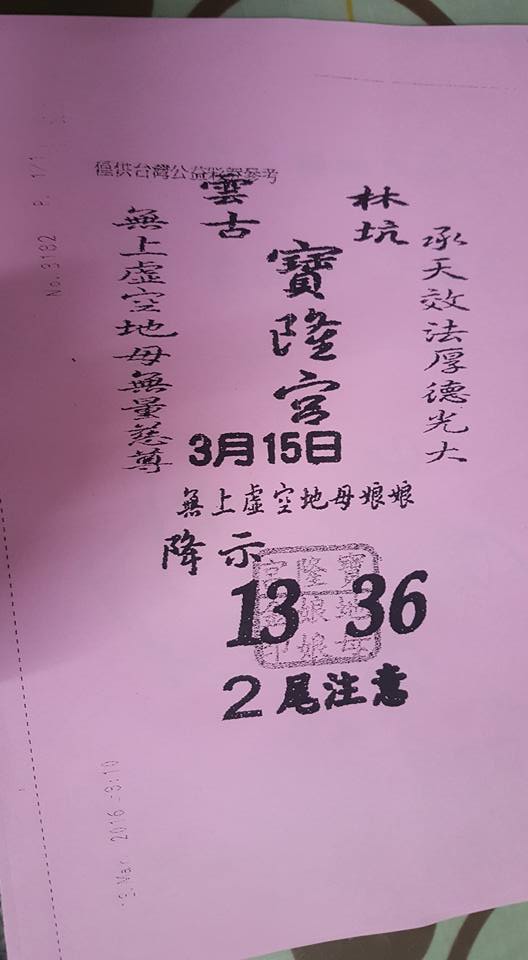 僅供台灣公益彩券參考
林坑
雲古
承天效法厚德光大
寶隆宮
無上虛空地母無量慈尊
3月15日
無上虛空地母娘娘
降示
13 36
2尾注意
No. 3182 P. 1/1
2016 3:10